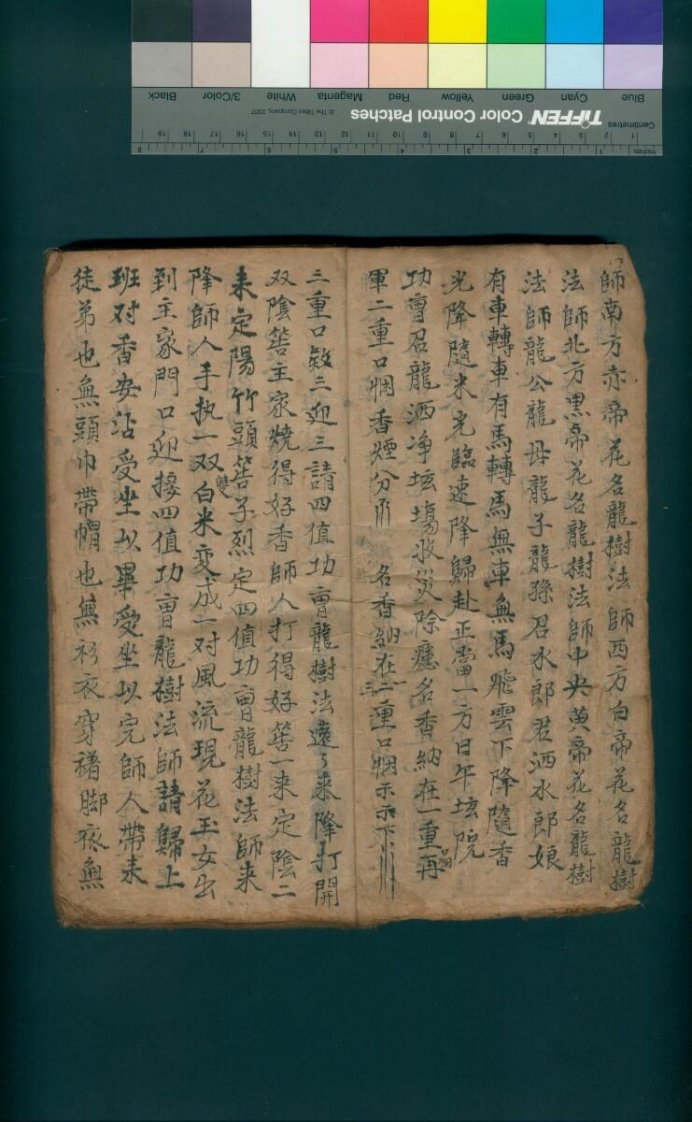 Blue Cyan Green Yellow Red Magenta White 3/Color Black
Centimetres TIFFEN Color Control Patches © The Tiffen Company, 2007
1 2 3 4 5 6 7 8 9 10 11 12 13 14 15 16 17 18 19
Inches 1 2 3 4 5 7 8
師南方赤帝花名龍樹法師西方白帝花名龍樹
法師北方黒帝花名龍樹法師中央黄帝花名龍樹
法師龍公龍母龍子龍孫召水郎君洒水郎娘
有車轉車有馬轉馬無車無馬飛雲下降隨香
光降隨米光臨速降歸赴正當一方日午坛院
功曺召龍洒净坛塲收災除瘟名香納在一重再
軍二重口惘香烟分 名香納在二重口惘示示下
三重口 三迎三請四值功曺龍樹法遠々来降打開
双陰筶主家燒得好香師人打得好筶一来定陰二
来定陽竹頭筶子烈定四值功曺龍樹法師来
降師人手执一双白米变成一对風流現花玉女出
到主家門口迎接四值功曺龍樹法師請歸上
班对香安沾受坐以畢受坐以完師人帶来
徒弟也無頭巾帶帽也無衫衣穿禇脚衣無